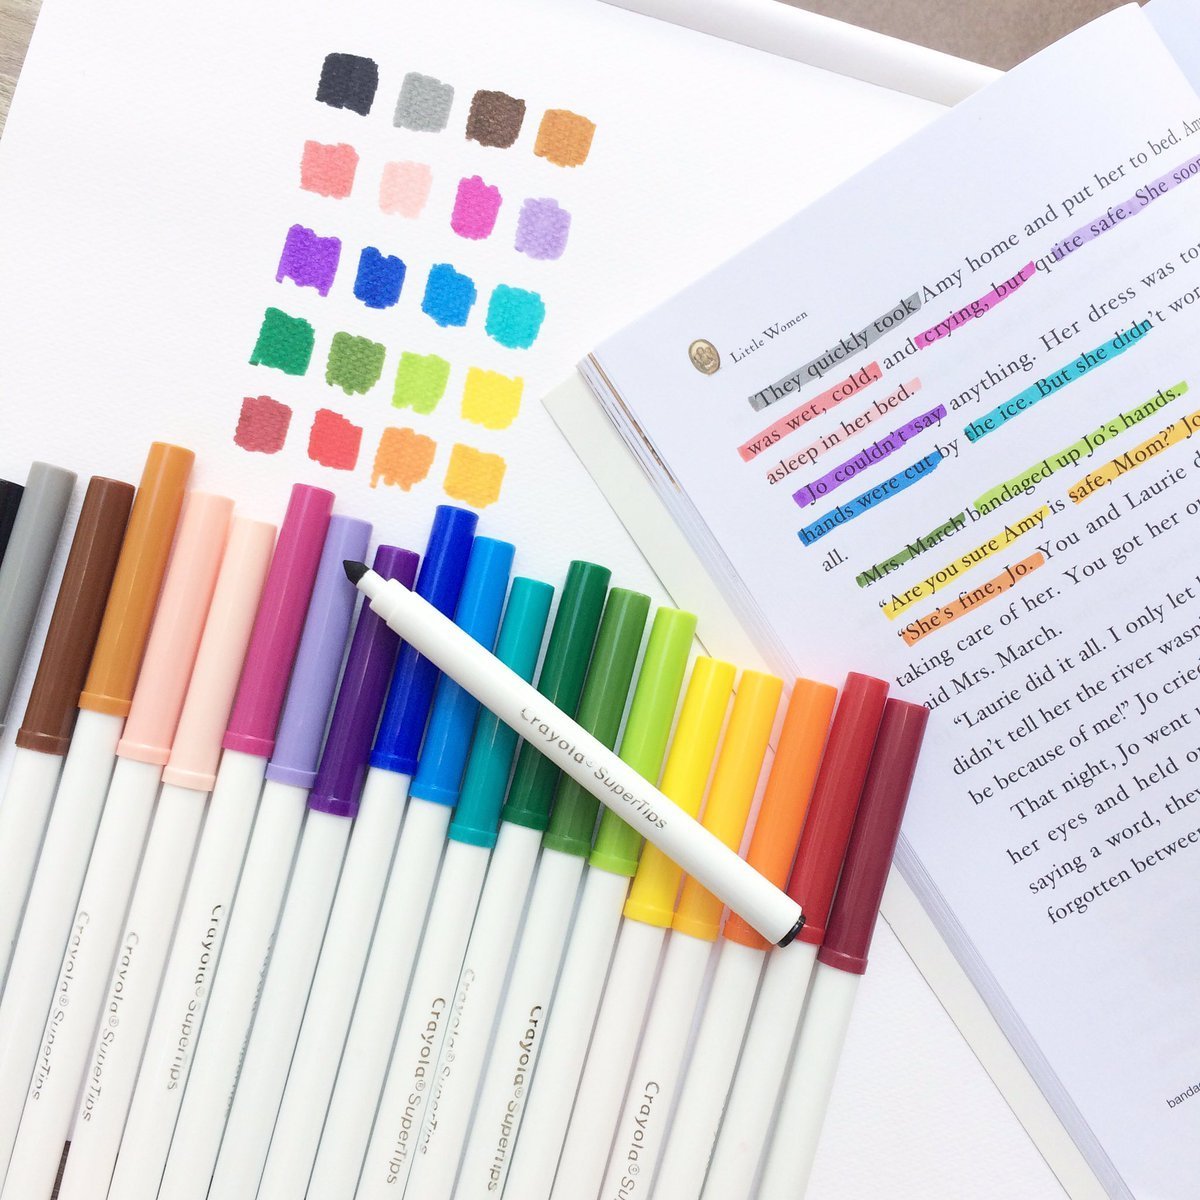 Little Women
They quickly took Amy home and put her to bed. Amy
was wet, cold, and crying, but quite safe. She soon
asleep in her bed.
Jo couldn't say anything. Her dress was
hands were cut by the ice. But she didn't
all.
Mrs. March bandaged up Jo's hands.
"Are you sure Amy is safe, Mom?" Jo
"She's fine, Jo. You and Laurie
taking care of her. You got her
said Mrs. March.
"Laurie did it all. I only let
didn't tell her the river
be because of me!" Jo cried
That night, Jo went
her eyes and held
saying a word, they
forgotten between
Crayola® SuperTips
Crayola® SuperTips
Crayola® SuperTips
Crayola® SuperTips
Crayola® SuperTips
Crayola® SuperTips
Crayola® SuperTips
Crayola® SuperTips